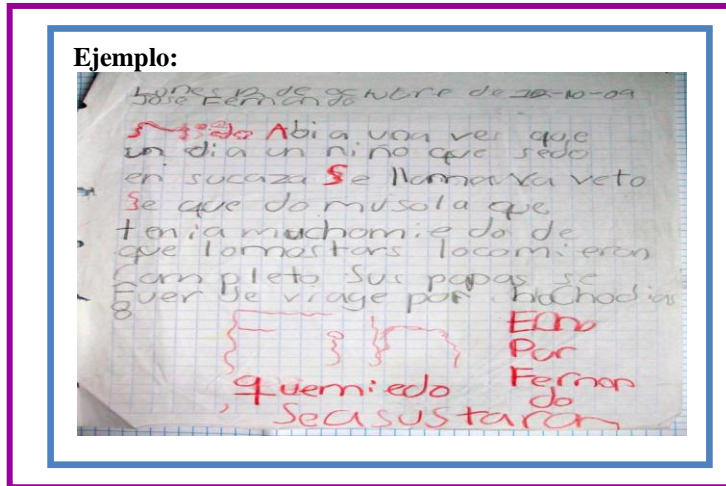 Ejemplo:
Lunes 12 de octubre de 12-10-09
Jose Fernando
Abi a una ves que
un dia un niño que sedo
en sucaza Se llamava veto
Se que do musola que
tenia muchomie do de
que lomostars locomieron
completo Sus papas se
fuer de viage por hochodias
8
Echo
Por
Fernan
do
quemiedo
Seasustaron